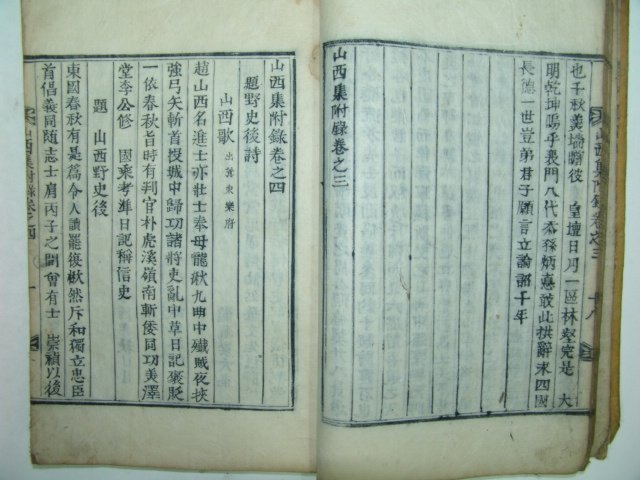 也子秋羹墻顒彼 皇壇日月一區林壑完是 大
明乾坤嗚乎裵門八代 孫炳憙敢此拱辭求四國
長德一世豈弟君子願言立論詔千年
山西集附錄卷之三
山西集附錄卷之三 十八
山西集附錄卷之四
題野史後詩
山西歌 出 東樂府
趙山西名進士亦壯士奉母龍湫九明中殲賊夜挾
強弓矢斬首授城中歸功諸將吏亂中草日記褒貶
一依春秋旨時有判官朴虎溪嶺南斬倭同功美澤
堂李公修 國乘考準日記稱信史
題 山西野史後
東國春秋有是篇令人讀罷後楸然斥和獨立忠臣
首倡義同隨志士肩丙子之間曾有士 崇禎以後
山西集附錄卷之四 一